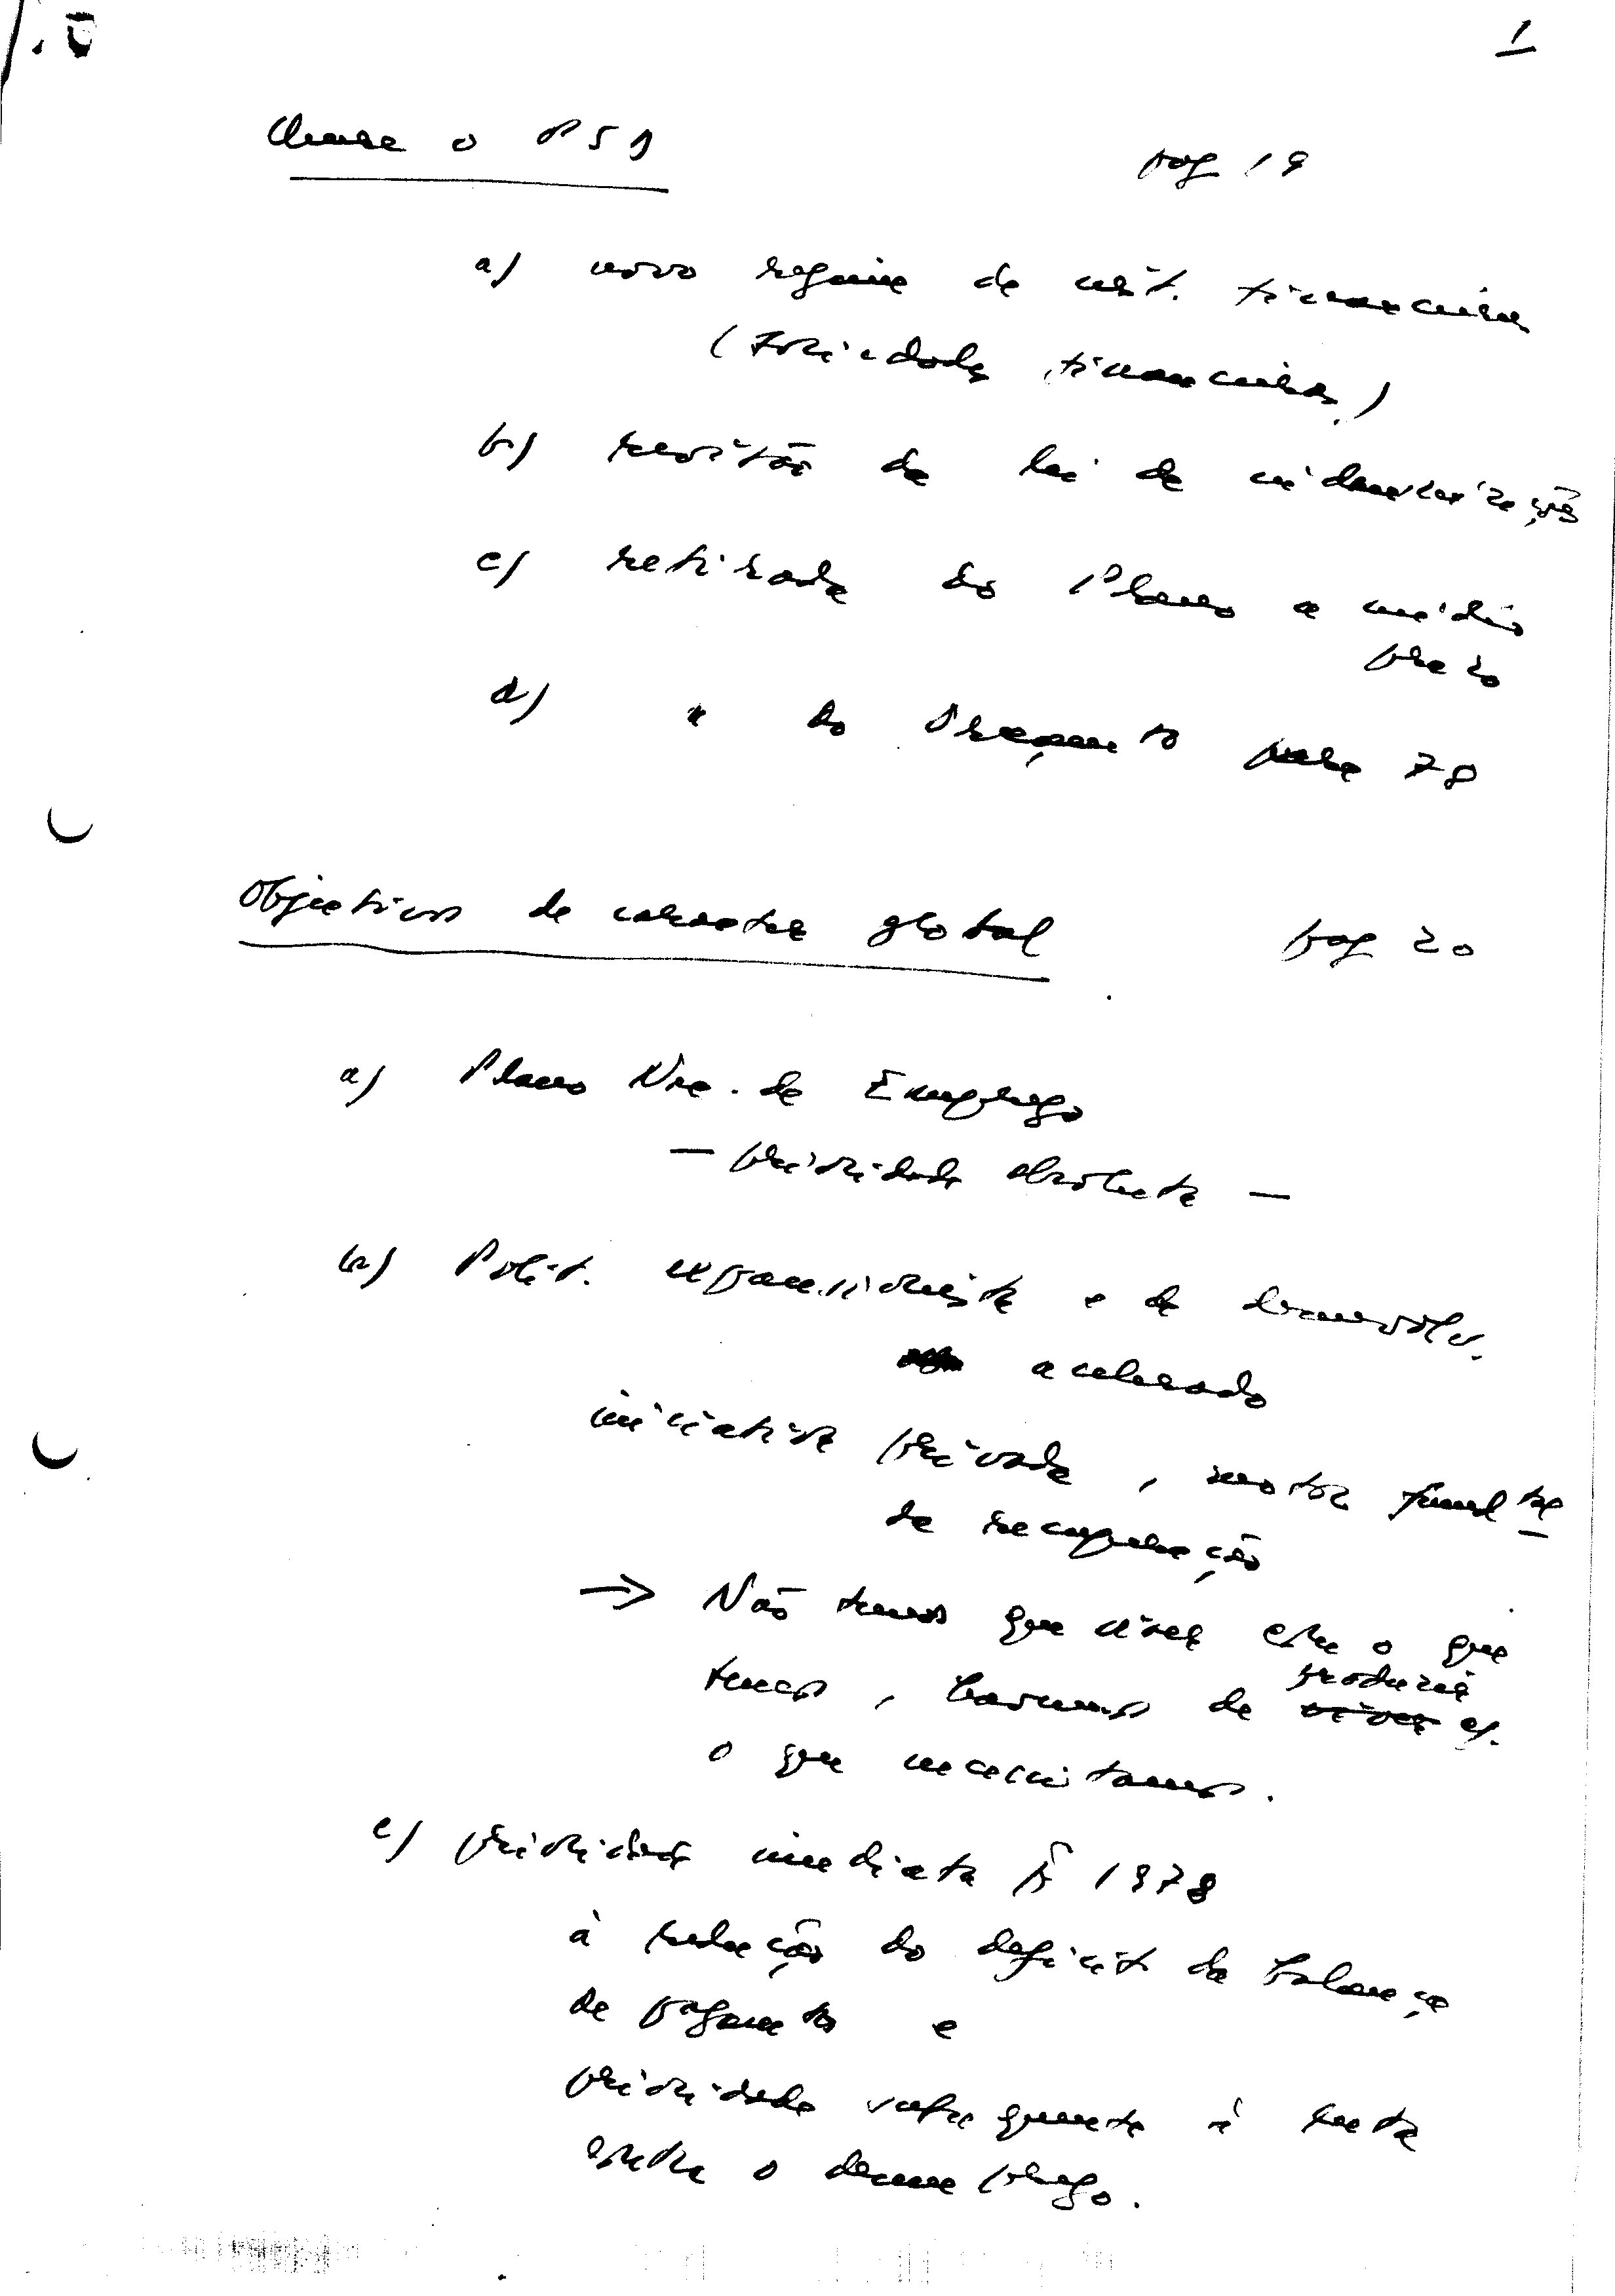 1
o PSD pag 19
a) novo regime de inst. financeiras
(Sociedades financeiras)
b) revisão da lei de indemnizações
c) retirada do Plano a médio
prazo
d) " do Orçamento para 78
Objectivos de caracter global pag 20
a) Plano Nac. de Emprego
— prioridade absoluta —
b) Polit. expansionista e de desenvolv.
acelerado
iniciativa privada, motor fundtal
da recuperação
→ Não temos que viver com o que
temos, havemos de produzir
o que necessitamos.
c) prioridade imediata p 1978
à redução do deficit da balança
de pagamentos e
prioridade subsequente à luta
contra o desemprego.